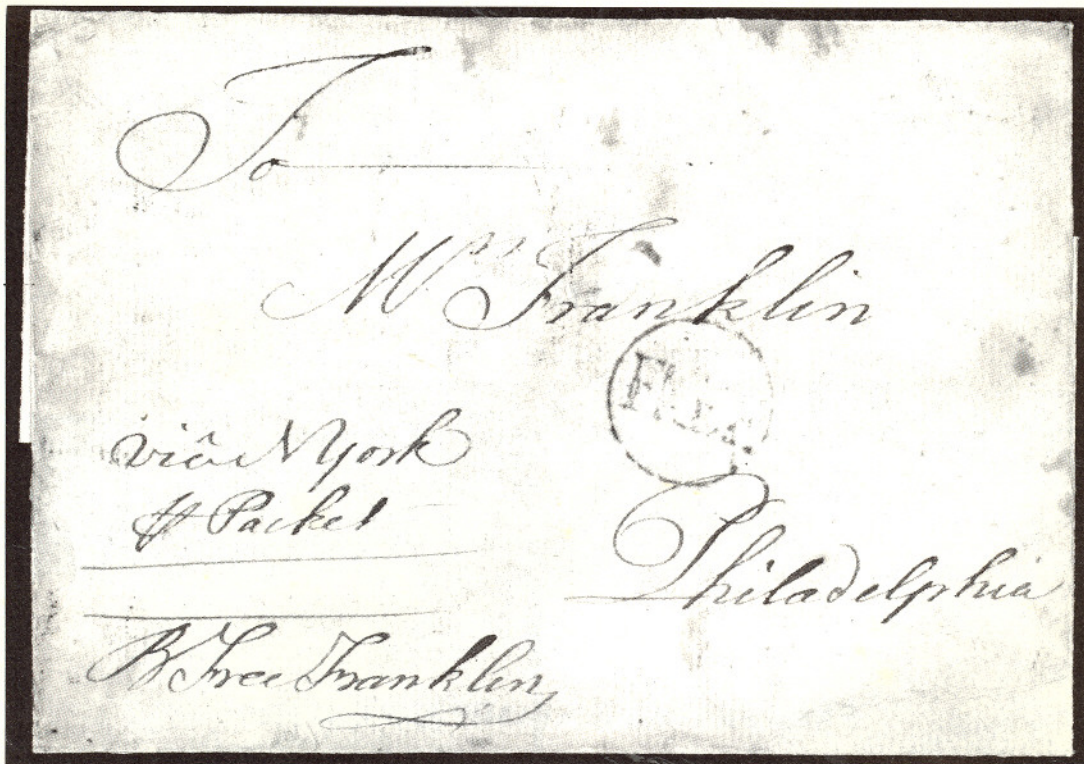 To
Mrs Franklin
FREE
via N York
⅌ Packet
Philadelphia
B Free Franklin